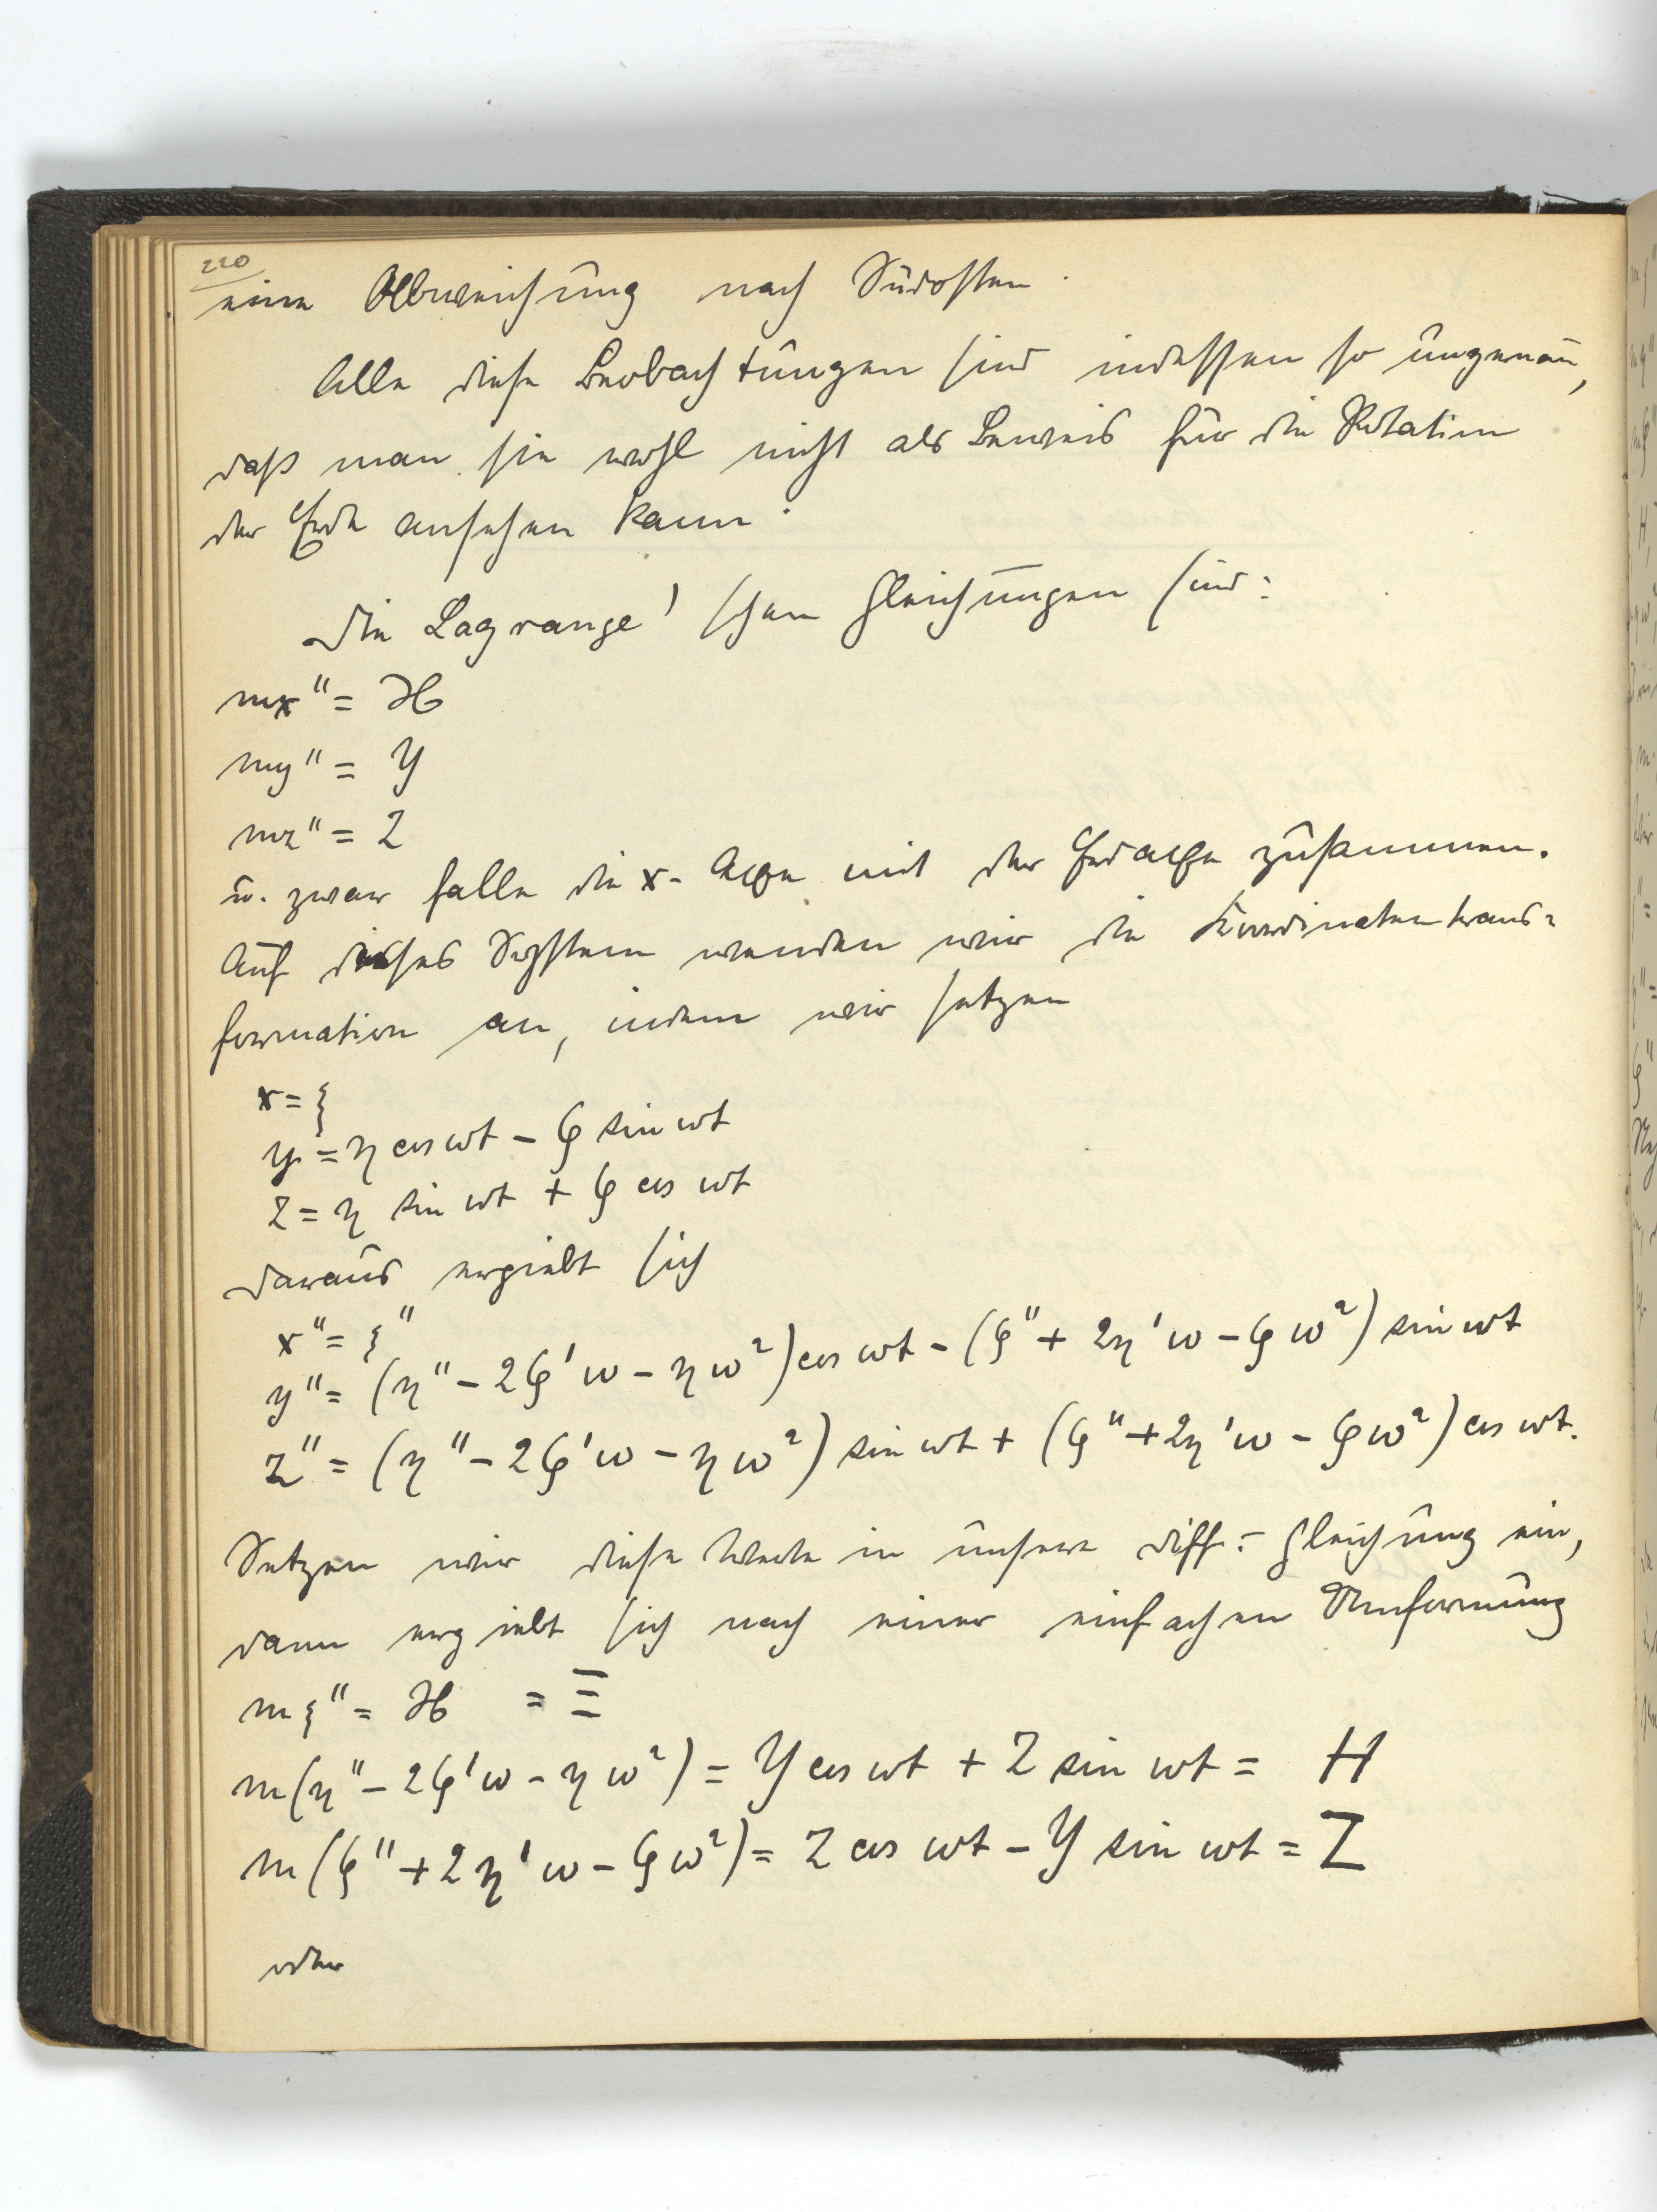 220
eine Abweichung nach Südosten.
Alle diese Beobachtungen sind indessen so ungenau,
daß man sie wohl nicht als Beweis für die Rotation
der Erde ansehen kann.
Die Lagrange'schen Gleichungen sind:
mx'' = X
my'' = Y
mz'' = Z
u. zwar falle die x-Achse mit der Erdachse zusammen.
Auf dieses System wenden wir die Koordinatentrans-
formation an, indem wir setzen
x = ξ
y = η cos ωt − ζ sin ωt
z = η sin ωt + ζ cos ωt
daraus ergiebt sich
x'' = ξ''
y'' = (η'' − 2ζ'ω − ηω²) cos ωt − (ζ'' + 2η'ω − ζω²) sin ωt
z'' = (η'' − 2ζ'ω − ηω²) sin ωt + (ζ'' + 2η'ω − ζω²) cos ωt.
Setzen wir diese Werte in unsere Diff.-Gleichung ein,
dann ergiebt sich nach einer einfachen Umformung
mξ'' = X = Ξ
m(η'' − 2ζ'ω − ηω²) = Y cos ωt + Z sin ωt = H
m(ζ'' + 2η'ω − ζω²) = Z cos ωt − Y sin ωt = Z
oder